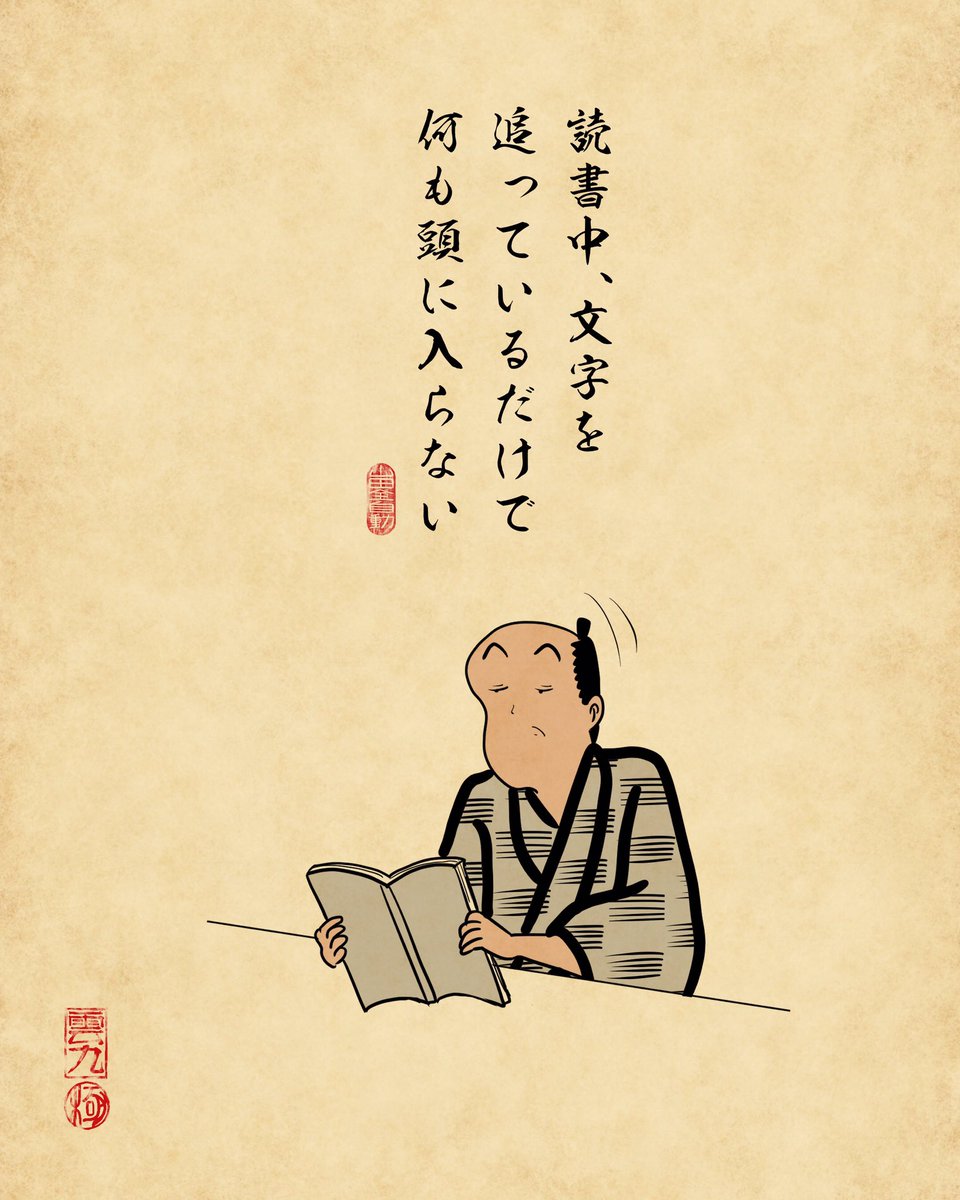 読書中、文字を
追っているだけで
何も頭に入らない